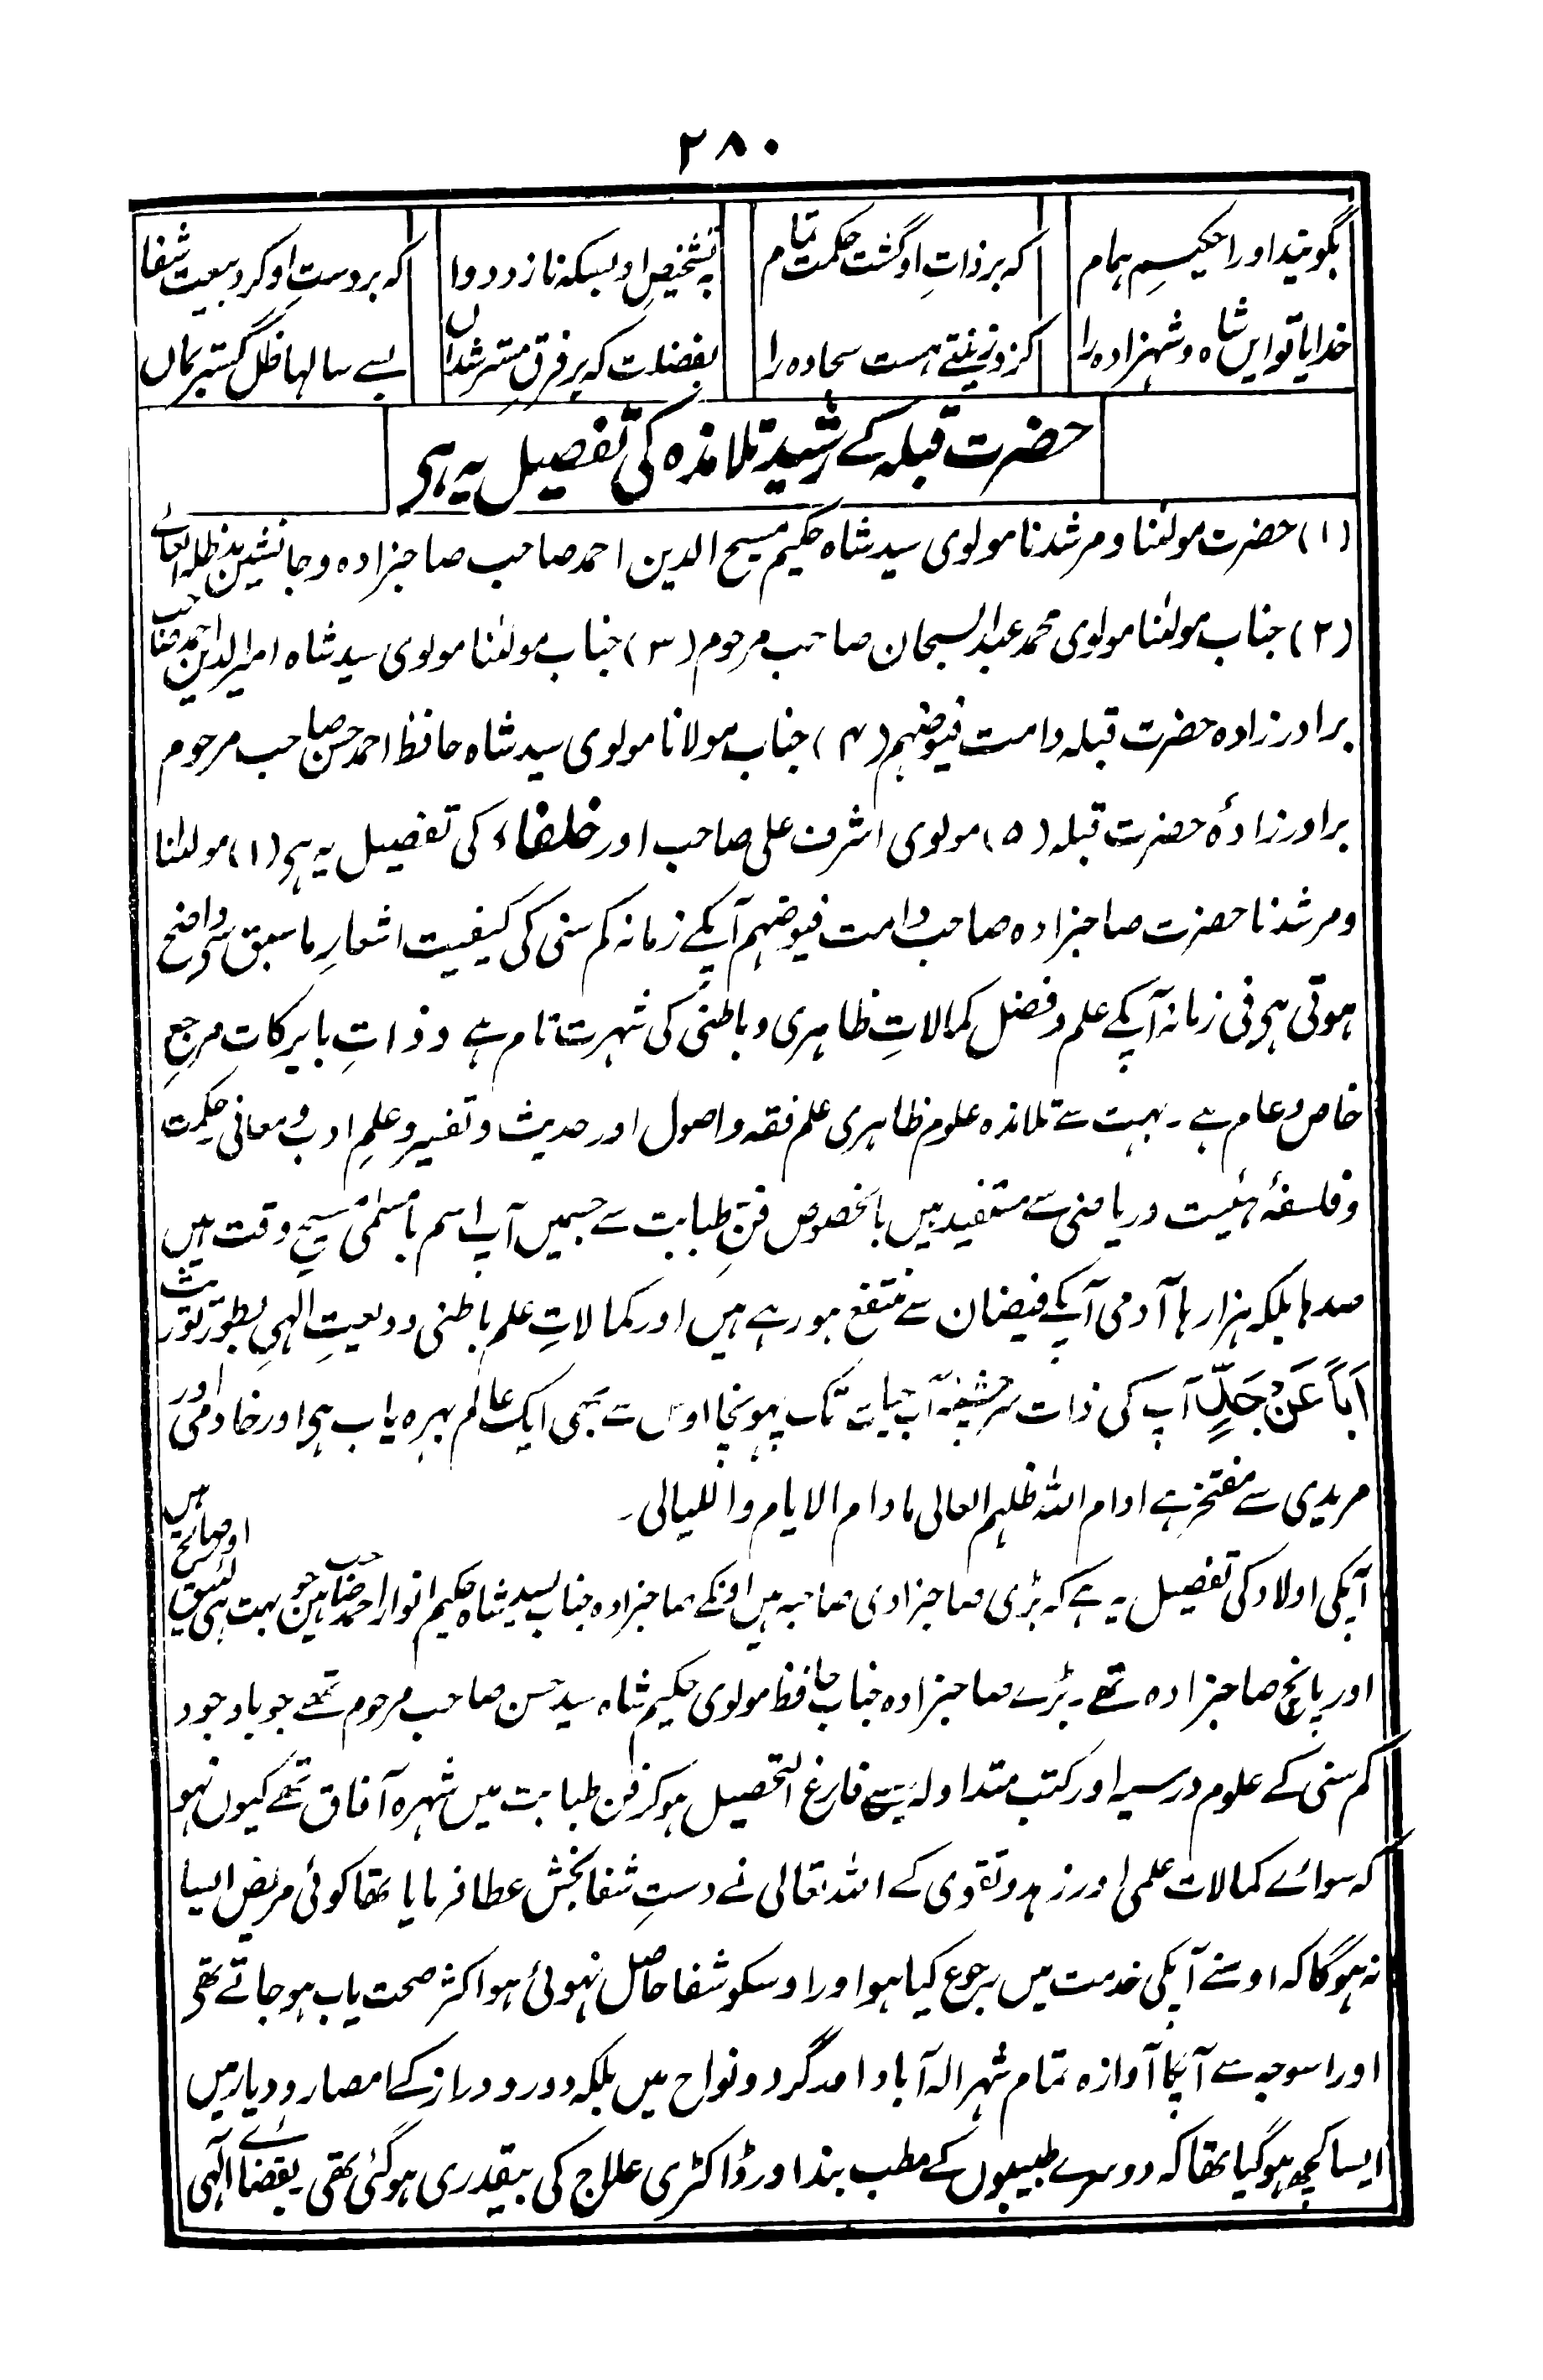 ۲۸۰
بگویند اورا حکیمِ ہمام کہ بر ذاتِ او گشت حکمت تمام بہ تشخیصِ او بسکہ نازد دوا کہ بر دستِ او کرد بیعت شفا
خدایا تو ایں شاہ و شہزادہ را کز و زینتے ہست سجادہ را بفضلت کہ بر فرقِ مسترشداں بسے سالہا ظل گستر بماں
حضرت قبلہ کے رشید تلامذہ کی تفصیل یہ ہی
(۱) حضرت مولٰنا و مرشدنا مولوی سید شاہ حکیم مسیح الدین احمد صاحب صاحبزادہ و جانشین مدظلہ العالے
(۲) جناب مولٰنا مولوی محمد عبدالسبحان صاحب مرحوم (۳) جناب مولٰنا مولوی سید شاہ امیرالدین احمد صاحب
برادرزادہ حضرت قبلہ دامت فیوضہم (۴) جناب مولانا مولوی سید شاہ حافظ احمد حسن صاحب مرحوم
برادرزادۂ حضرت قبلہ (۵) مولوی اشرف علی صاحب اور خلفاء کی تفصیل یہ ہی (۱) مولٰنا
و مرشدنا حضرت صاحبزادہ صاحب دامت فیوضہم آپکے زمانہ کم سنی کی کیفیت اشعارِ ماسبق سے واضح
ہوتی ہی فی زمانہ آپکے علم و فضل کمالاتِ ظاہری و باطنی کی شہرت تام ہے و ذاتِ بابرکات مرجعِ
خاص و عام ہے ۔ بہت سے تلامذہ علوم ظاہری علم فقہ و اصول اور حدیث و تفسیر و علمِ ادب و معانی حکمت
و فلسفۂ ہئیت و ریاضی سے مستفید ہیں بالخصوص فنِ طبابت سے جسمیں آپ اسم بامسمّٰی مسیح وقت ہیں
صدہا بلکہ ہزارہا آدمی آپکے فیضان سے منتفع ہو رہے ہیں اور کمالاتِ علم باطنی و ودیعتِ الٰہی بطور توریث
اَباً عَنْ جَدٍّ آپ کی ذات سرچشمۂ آب حیات تک پہونچا اوس سے بھی ایک عالم بہرہ یاب ہی اور خادمی اور
مریدی سے مفتخر ہے ادام اللہ ظلہم العالی مادام الایام واللیالی ۔
آپکی اولاد کی تفصیل یہ ہے کہ بڑی صاحبزادی صاحبہ ہیں اونکے صاحبزادہ جناب سید شاہ حکیم انوار احمد صاحب ہیں جو بہت ہی لئیق اور صالح ہیں
اور پانچ صاحبزادہ تھے ۔ بڑے صاحبزادہ جناب حافظ مولوی حکیم شاہ سید حسن صاحب مرحوم تھے جو باوجود
کم سنی کے علوم درسیہ اور کتب متداولہ سے فارغ التحصیل ہو کر فن طبابت میں شہرہ آفاق تھے کیوں نہو
کہ سوائے کمالات علمی اور زہد و تقوی کے اللہ تعالی نے دستِ شفا بخش عطا فرمایا تھا کوئی مریض ایسا
نہ ہوگا کہ اوسنے آپکی خدمت میں رجوع کیا ہو اور اوسکو شفا حاصل نہوئی ہو اکثر صحت یاب ہو جاتے تھے
اور اسوجہ سے آپکا آوازہ تمام شہر الہ آباد اور گرد و نواح میں بلکہ دور و دراز کے امصار و دیار میں
ایسا کچھ ہوگیا تھا کہ دوسرے طبیبوں کے مطب بند اور ڈاکٹری علاج کی بیقدری ہوگئی تھی بقضائے الٰہی